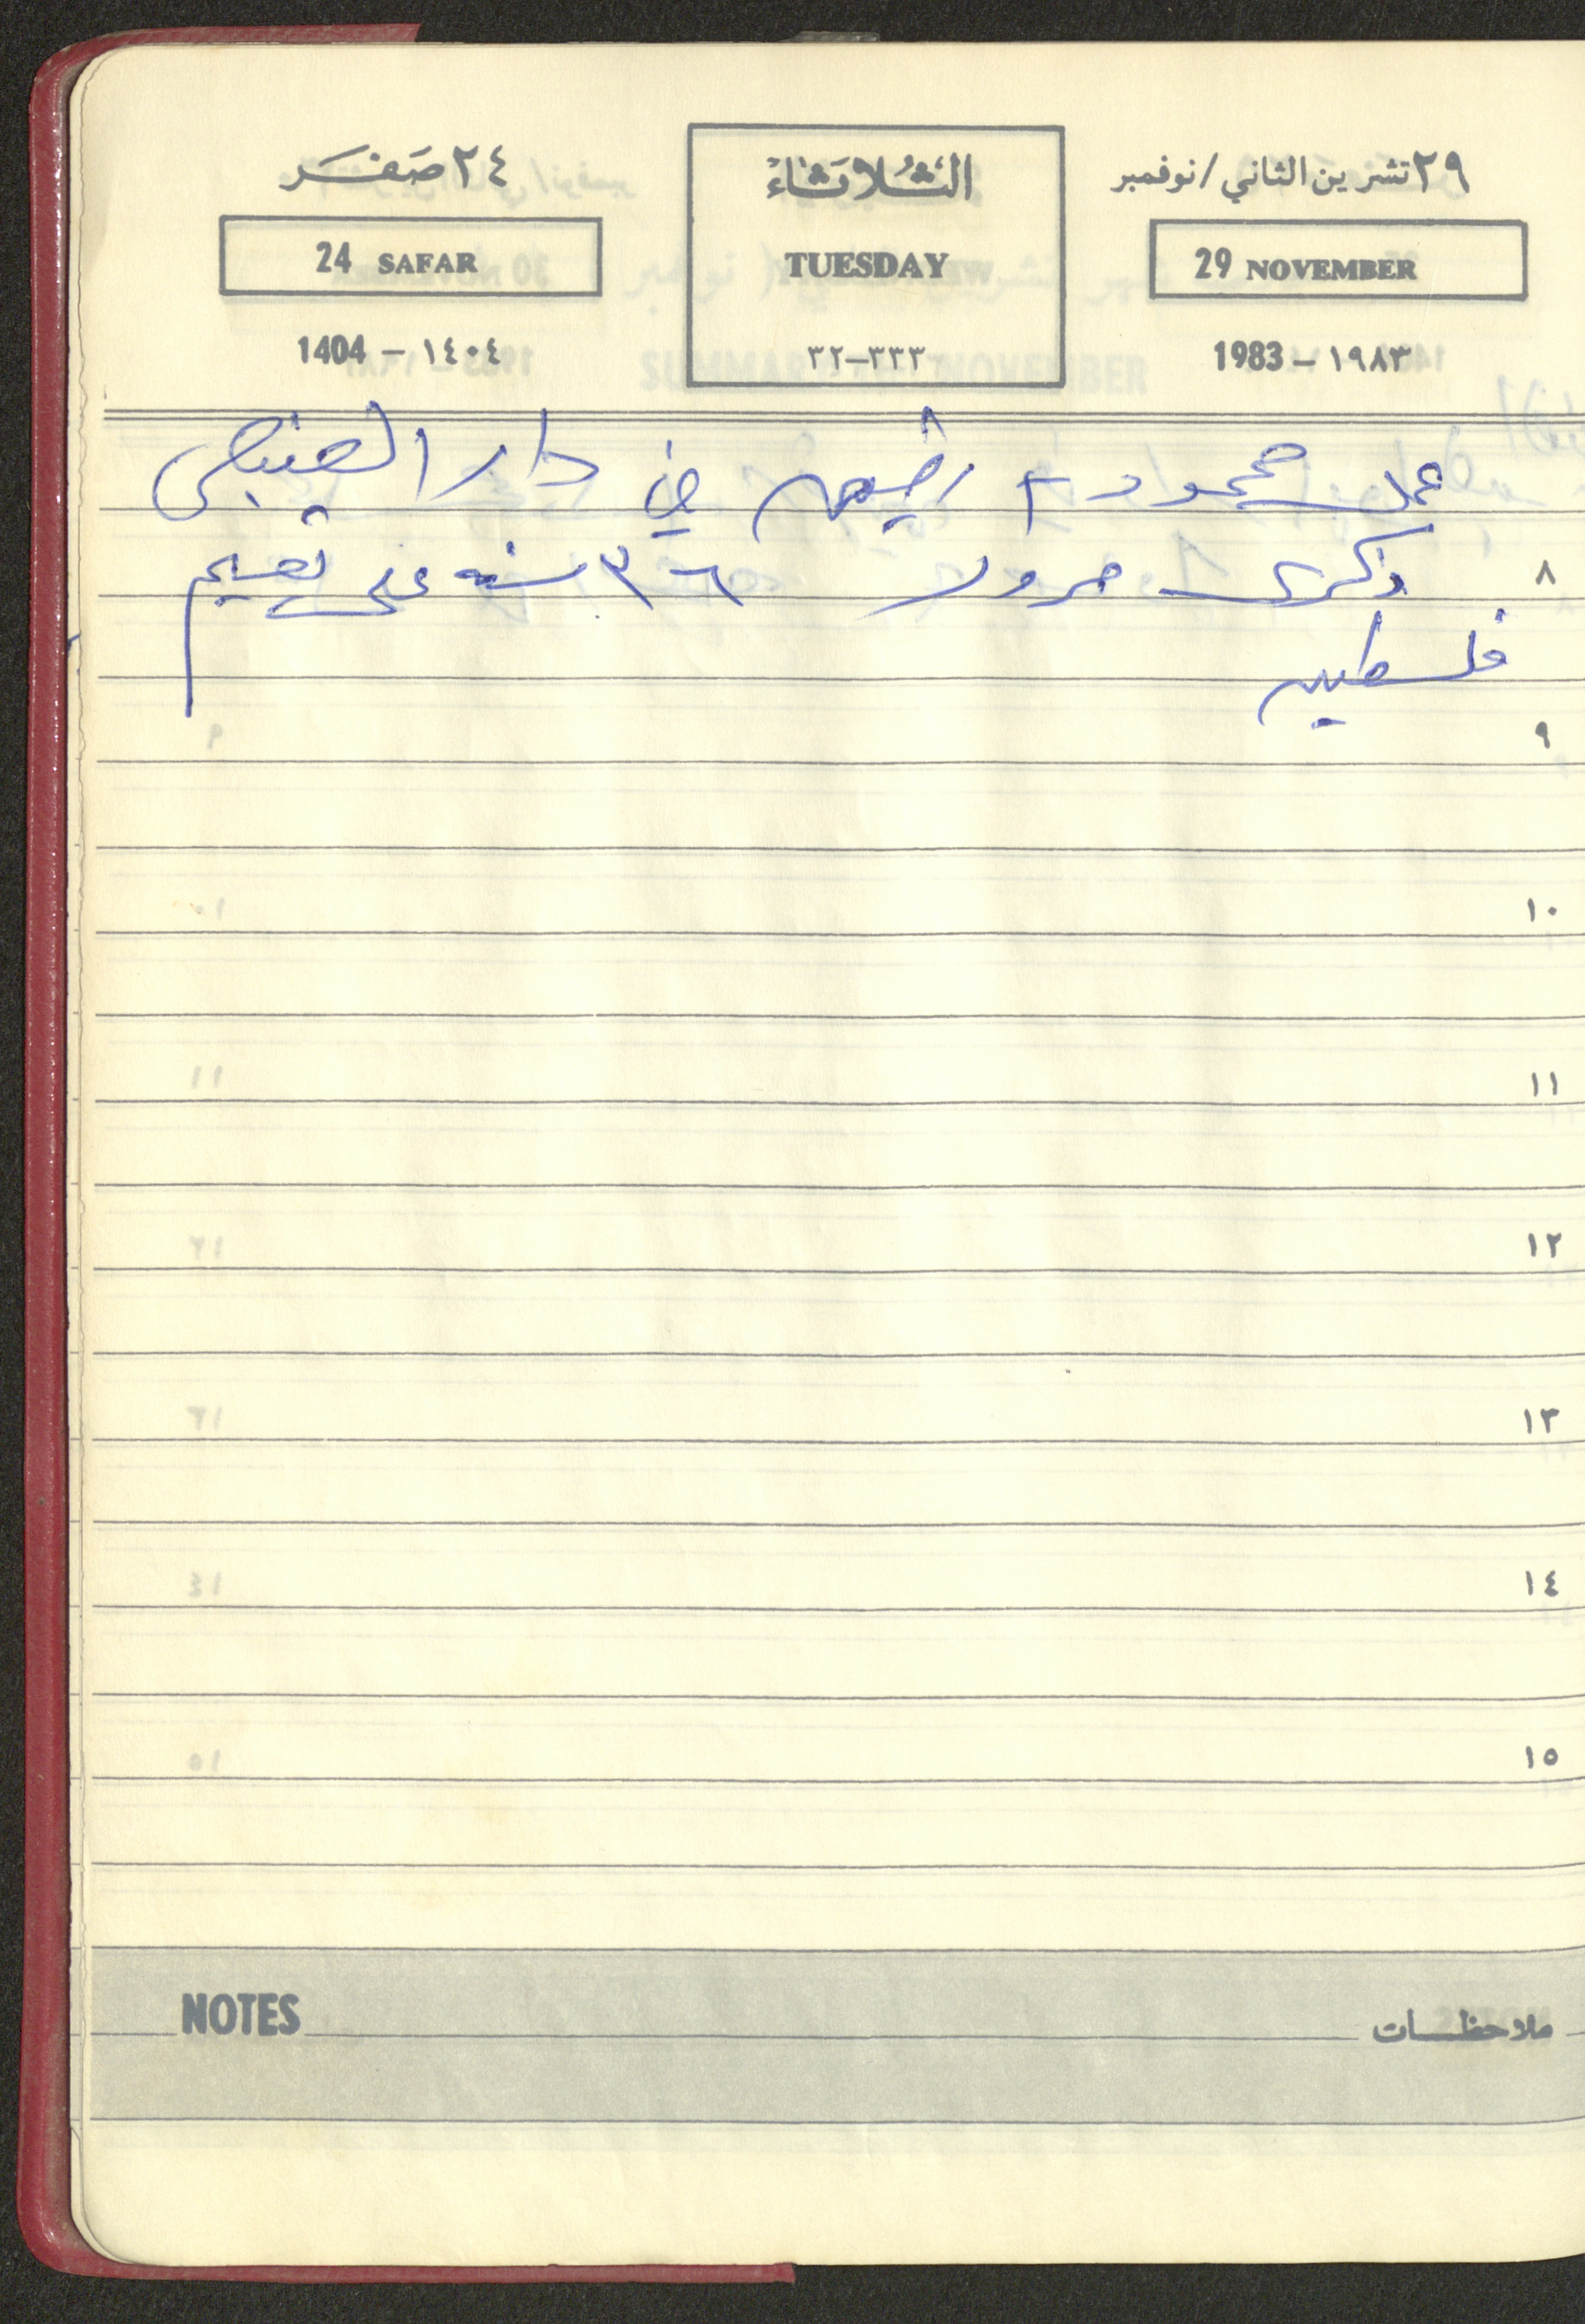 ٢٩ تشرين الثاني / نوفمبر
29 NOVEMBER
1983 – ١٩٨٣
الثلاثاء
TUESDAY
٣٢–٣٣٣
٢٤ صفر
24 SAFAR
1404 – ١٤٠٤
عمل محمود في دار
ذكرى مرور ٣٦ سنه على تقسيم
فلسطين
٨
٩
١٠
١١
١٢
١٣
١٤
١٥
NOTES ملاحظات